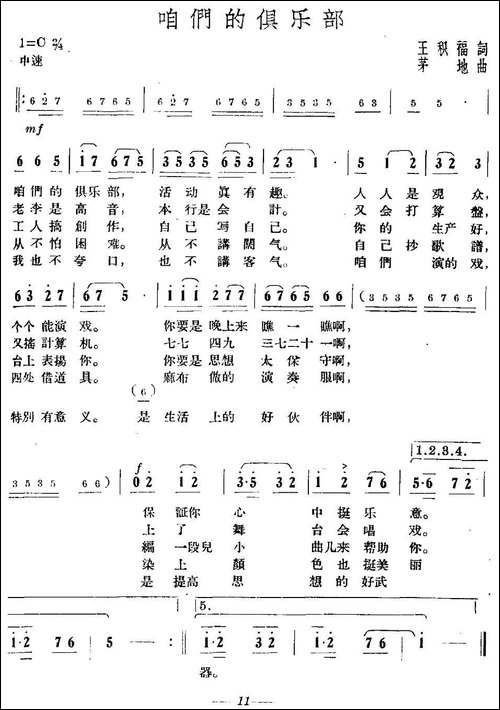 咱們的俱乐部
1=C 2/4
中速
王积福詞
茅地曲
mf
6 6 5 i7 675 3535 3565 23 1· 51 32 32 3
咱們的 俱乐部， 活动 眞有趣。 人人是覌众，
老李是 高音， 本行是会計。 又会打算盤，
工人搞 創作， 自己写自己。 你的生产好，
从不怕 困难。 从不講闊气。 自己抄歌譜，
我也不 夸口， 也不講客气。 咱們演的戏，
63 27 676 5· iii 277 6765 66 (3535 6765
个个能演戏。 你要是晚上来瞧一瞧啊，
又搞計算机。 七七四九三七二十一啊，
台上表揚你。 你要是思想太保守啊，
四处借道具。 麻布做的演奏服啊，
(6)
特別有意义。 是生活上的好伙伴啊，
f
1.2.3.4.
3535 66) 02 i2 3·5 32 i2 76 5·6 72
保証你心中挺乐意。
上了舞台会唱戏。
編一段兒小曲儿来帮助你。
染上顏色也挺美丽
是提高思想的好武
5.
i·2 76 5 — i·2 76 i·2 76 5 —
器。
11